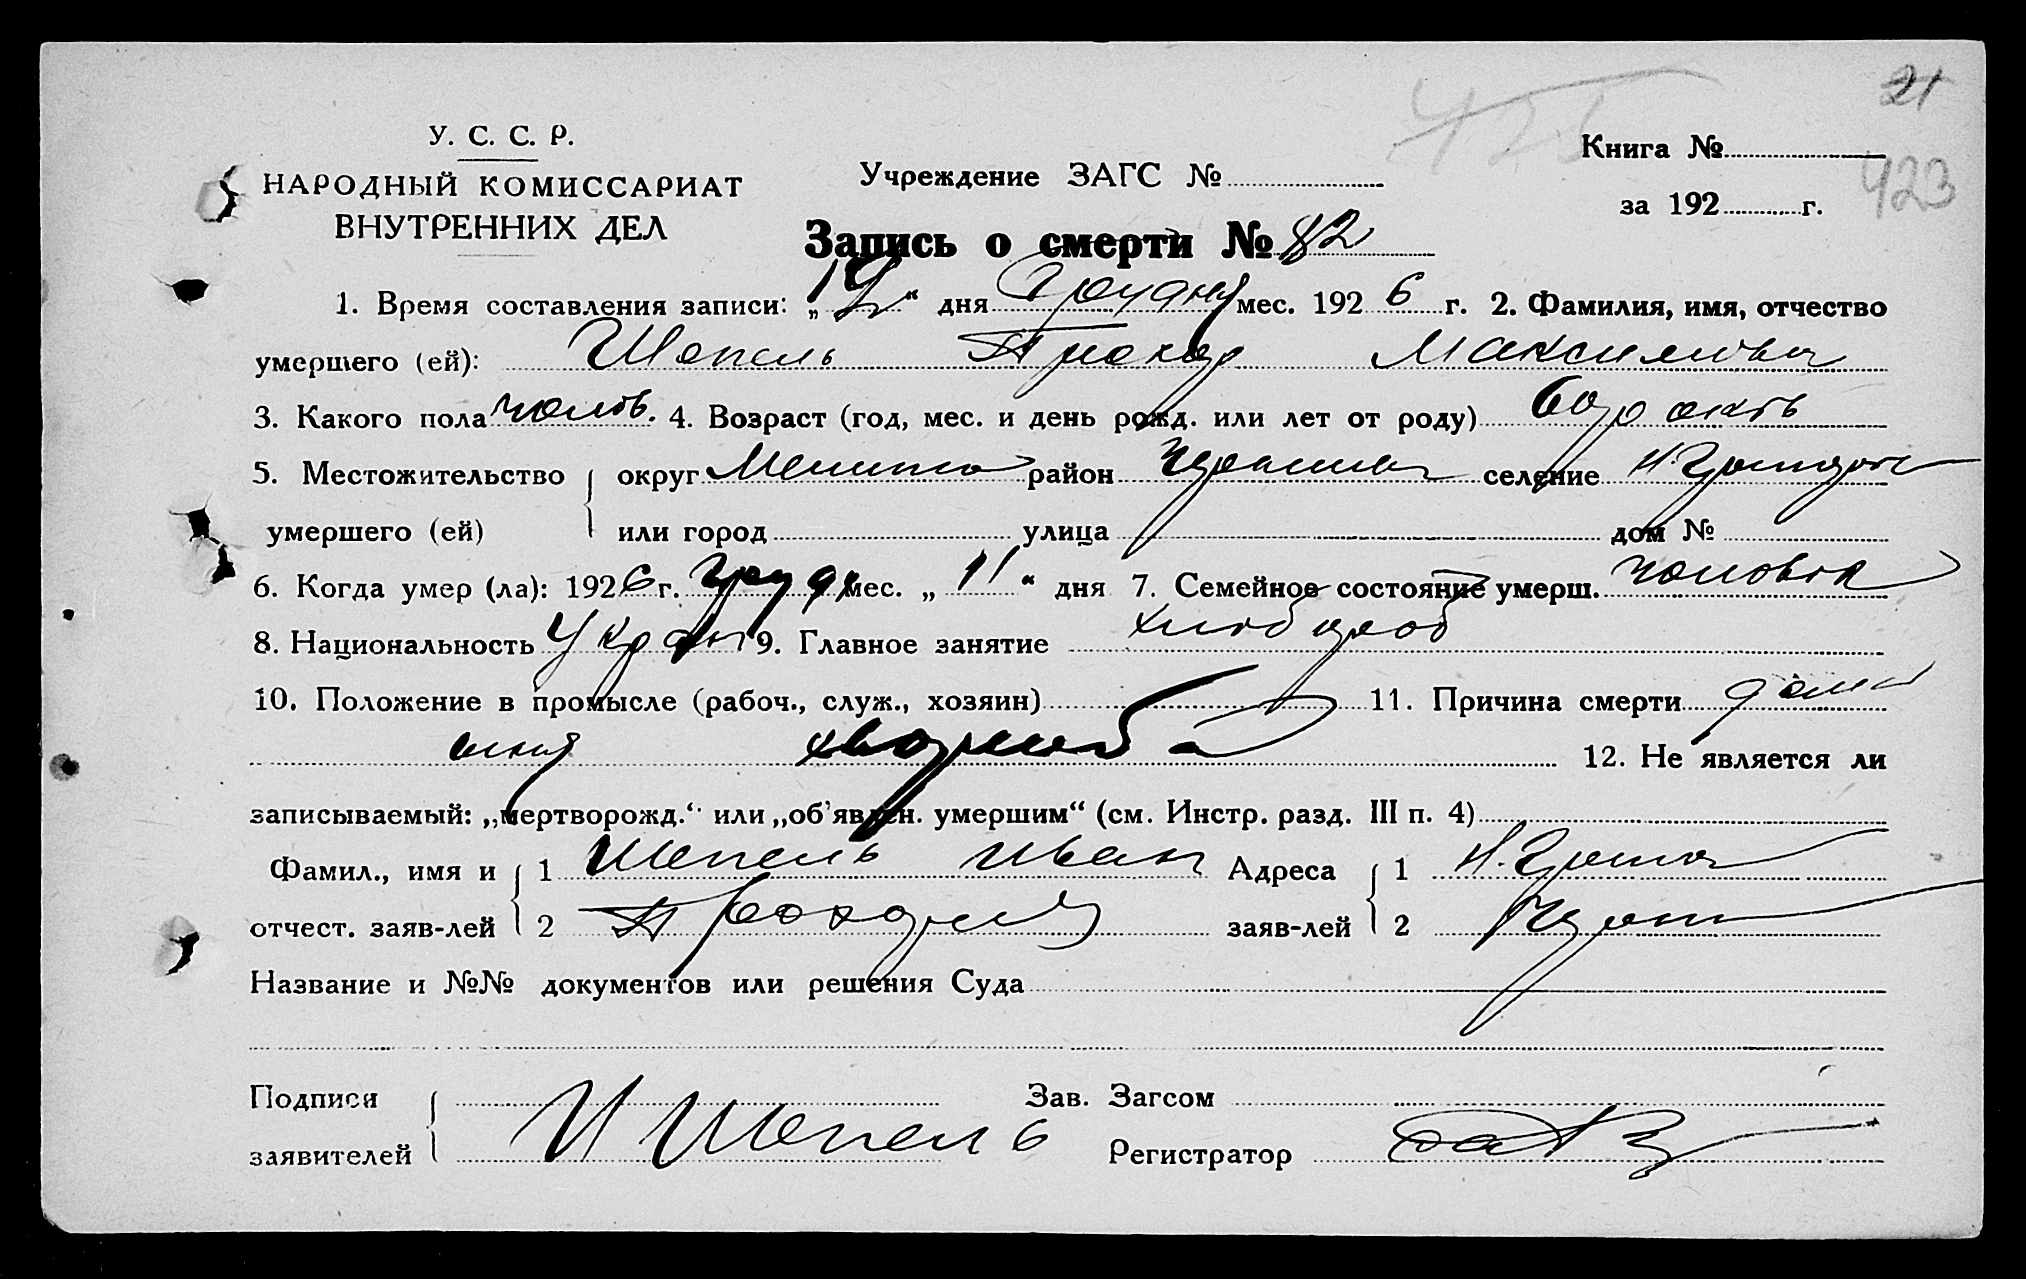 21
У. С. С. Р.
Книга №
НАРОДНЫЙ КОМИССАРИАТ
Учреждение ЗАГС №
423
ВНУТРЕННИХ ДЕЛ
за 192 г.
Запись о смерти № 82
1. Время составления записи: „ “ дня Грудня мес. 1926 г. 2. Фамилия, имя, отчество
умершего (ей): Шепель Прохор Максимович
3. Какого пола чолов. 4. Возраст (год, мес. и день рожд. или лет от роду)
5. Местожительство округ район селение
умершего (ей) или город улица дом №
6. Когда умер (ла): 1926 г. Грудн мес. „ 11 “ дня 7. Семейное состояние умерш.
8. Национальность Украин 9. Главное занятие хлібороб
10. Положение в промысле (рабоч., служ., хозяин) 11. Причина смерти
хвороба 12. Не является ли
записываемый: „мертворожд.“ или „об'явлен. умершим“ (см. Инстр. разд. III п. 4)
Фамил., имя и 1 Шепель Иван Адреса 1
отчест. заяв-лей 2 Прохорович заяв-лей 2
Название и №№ документов или решения Суда
Подписи Зав. Загсом
И Шепель
заявителей Регистратор